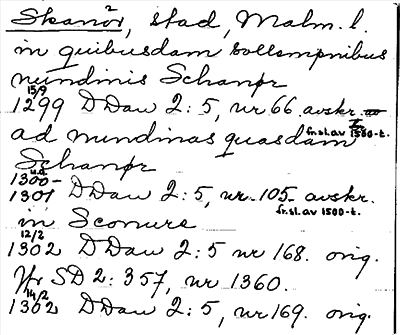 Skanör, stad, Malm. l.
in quibusdam sollempnibus
nundinis Schanør
15/9
1299 DDan 2:5, nr 66. avskr.
fr. sl. av 1500-t.
ad nundinas quasdam
Schanør
u.a.
1300-
1301 DDan 2:5, nr 105 avskr.
fr. sl. av 1500-t.
in Sconure
12/2
1302 DDan 2:5 nr 168. orig.
Jfr SD 2:357, nr 1360.
14/2
1302 DDan 2:5, nr 169. orig.